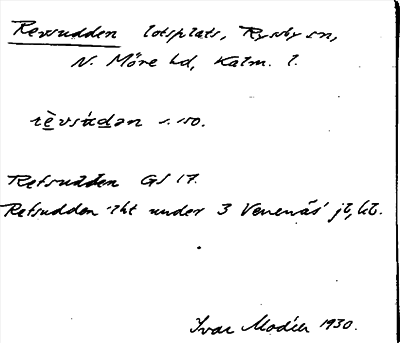 Revsudden lotsplats, Ryssby sn,
N. Möre hd, Kalm. l.
rèvsúdən s. 150.
Refsudden GS 17.
Refsudden 1ht under 3 Venenäs jb, kb.
Ivar Modéer 1930.